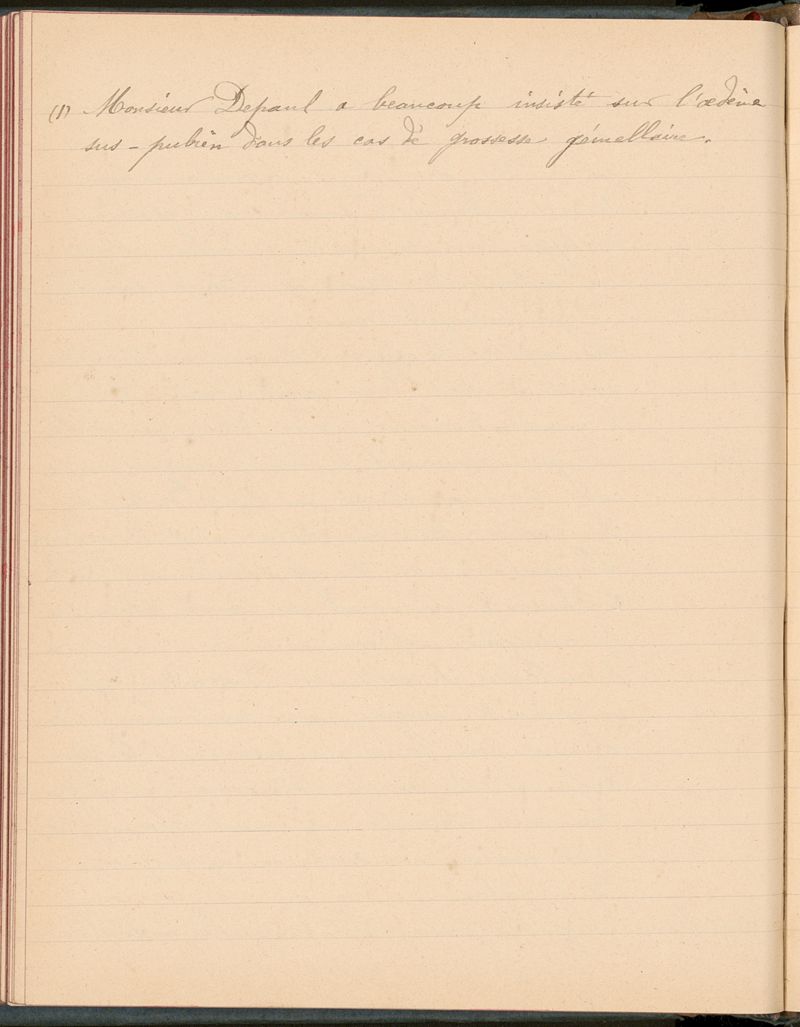 (1) Monsieur Depaul a beaucoup insisté sur l'œdème
sus-pubien dans les cas de grossesse gémellaire.